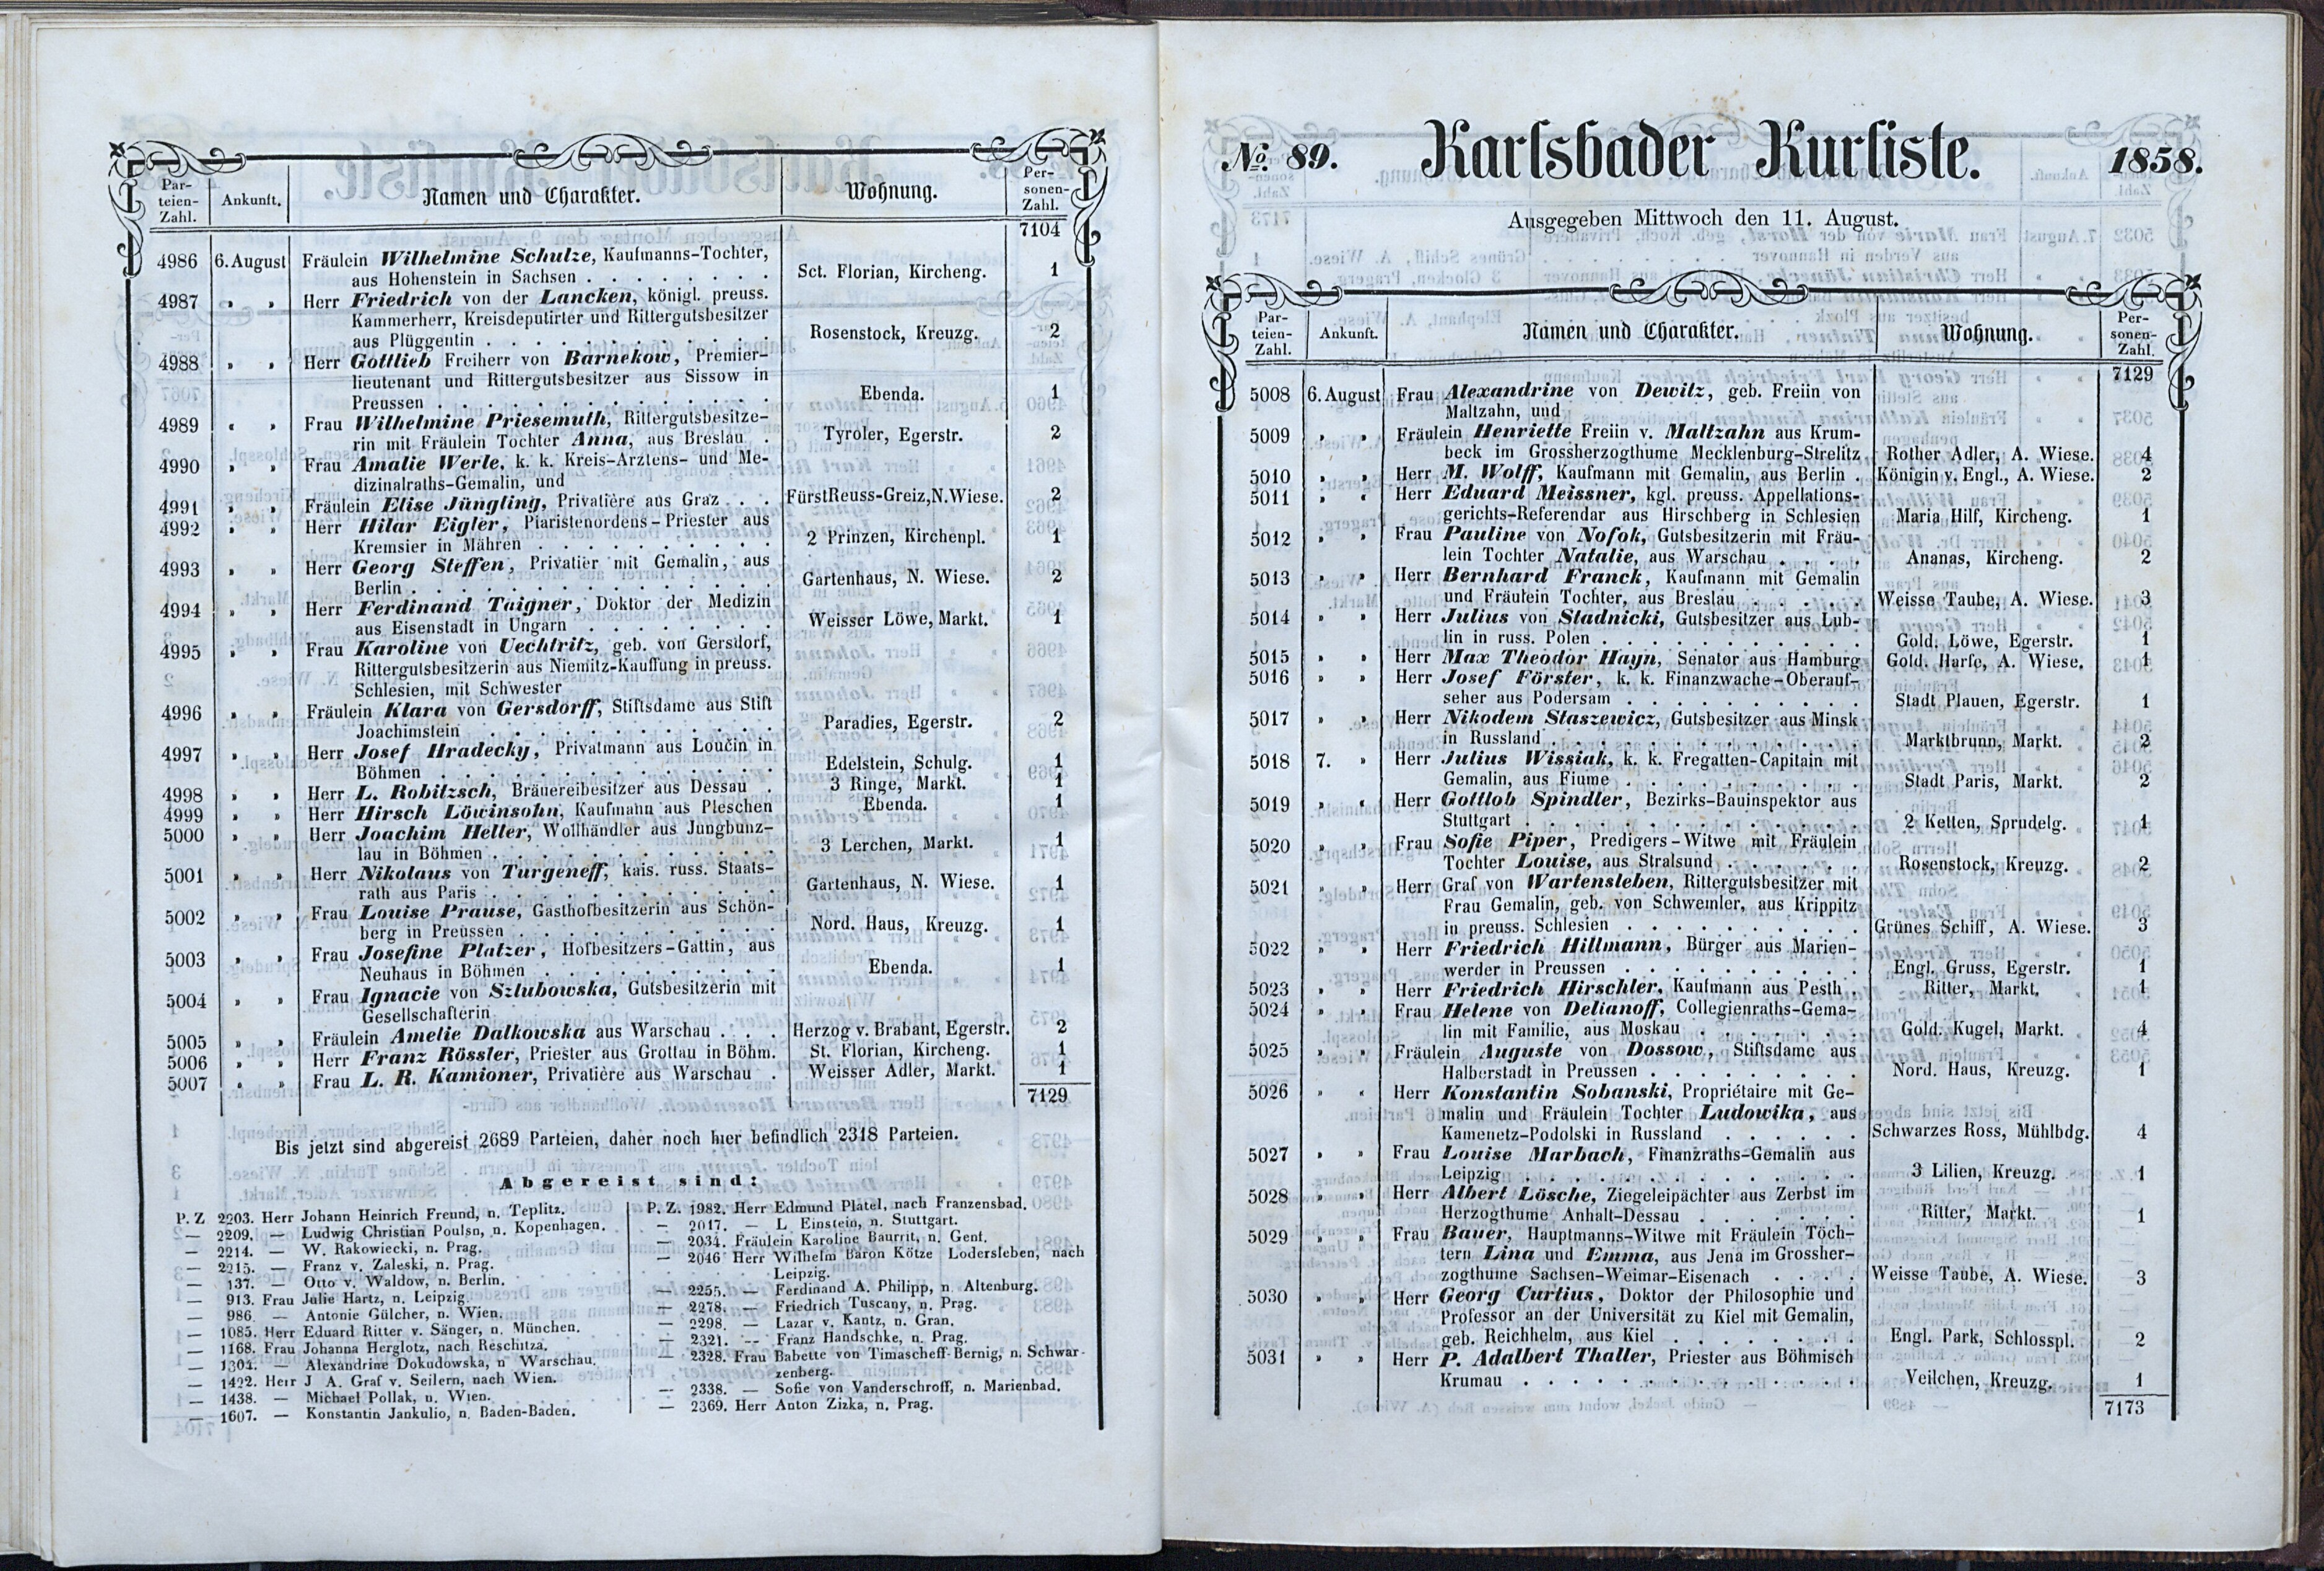 Par-
teien-
Zahl.
Ankunft.
Namen und Charakter.
Wohnung.
Per-
sonen-
Zahl.
7104
4986 6. August Fräulein Wilhelmine Schulze, Kaufmanns-Tochter,
aus Hohenstein in Sachsen . . . . . . . . Sct. Florian, Kircheng. 1
4987 „ „ Herr Friedrich von der Lancken, königl. preuss.
Kammerherr, Kreisdeputirter und Rittergutsbesitzer
aus Plüggentin . . . . . . . . . . . Rosenstock, Kreuzg. 2
4988 „ „ Herr Gottlieb Freiherr von Barnekow, Premier-
lieutenant und Rittergutsbesitzer aus Sissow in
Preussen . . . . . . . . . . . . . Ebenda. 1
4989 „ „ Frau Wilhelmine Priesemuth, Rittergutsbesitze-
rin mit Fräulein Tochter Anna, aus Breslau . Tyroler, Egerstr. 2
4990 „ „ Frau Amalie Werle, k. k. Kreis-Arztens- und Me-
dizinalraths-Gemalin, und
4991 „ „ Fräulein Elise Jüngling, Privatière aus Graz . . Fürst Reuss-Greiz, N. Wiese. 2
4992 „ „ Herr Hilar Eigler, Piaristenordens-Priester aus
Kremsier in Mähren . . . . . . . . . 2 Prinzen, Kirchenpl. 1
4993 „ „ Herr Georg Steffen, Privatier mit Gemalin, aus
Berlin . . . . . . . . . . . . . Gartenhaus, N. Wiese. 2
4994 „ „ Herr Ferdinand Taigner, Doktor der Medizin
aus Eisenstadt in Ungarn . . . . . . . Weisser Löwe, Markt. 1
4995 „ „ Frau Karoline von Uechtritz, geb. von Gersdorf,
Rittergutsbesitzerin aus Niemitz-Kauffung in preuss.
Schlesien, mit Schwester
4996 „ „ Fräulein Klara von Gersdorff, Stiftsdame aus Stift
Joachimstein . . . . . . . . . . Paradies, Egerstr. 2
4997 „ „ Herr Josef Hradecky, Privatmann aus Loučin in
Böhmen . . . . . . . . . . . . . Edelstein, Schulg. 1
4998 „ „ Herr L. Robitzsch, Bräuereibesitzer aus Dessau . 3 Ringe, Markt. 1
4999 „ „ Herr Hirsch Löwinsohn, Kaufmann aus Pleschen Ebenda. 1
5000 „ „ Herr Joachim Heller, Wollhändler aus Jungbunz-
lau in Böhmen . . . . . . . . . . . 3 Lerchen, Markt. 1
5001 „ „ Herr Nikolaus von Turgeneff, kais. russ. Staats-
rath aus Paris . . . . . . . . . . . Gartenhaus, N. Wiese. 1
5002 „ „ Frau Louise Prause, Gasthofbesitzerin aus Schön-
berg in Preussen . . . . . . . . . . Nord. Haus, Kreuzg. 1
5003 „ „ Frau Josefine Platzer, Hofbesitzers-Gattin, aus
Neuhaus in Böhmen . . . . . . . . . Ebenda. 1
5004 „ „ Frau Ignacie von Sztubowska, Gutsbesitzerin mit
Gesellschafterin
5005 „ „ Fräulein Amelie Dalkowska aus Warschau . . Herzog v. Brabant, Egerstr. 2
5006 „ „ Herr Franz Rössler, Priester aus Grottau in Böhm. St. Florian, Kircheng. 1
5007 „ „ Frau L. R. Kamioner, Privatière aus Warschau . Weisser Adler, Markt. 1
7129
Bis jetzt sind abgereist 2689 Parteien, daher noch hier befindlich 2318 Parteien.
Abgereist sind:
P. Z 2203. Herr Johann Heinrich Freund, n. Teplitz.
— 2209. — Ludwig Christian Poulsn, n. Kopenhagen.
— 2214. — W. Rakowiecki, n. Prag.
— 2215. — Franz v. Zaleski, n. Prag.
— 137. — Otto v. Waldow, n. Berlin.
— 913. Frau Julie Hartz, n. Leipzig
— 986. — Antonie Gülcher, n. Wien.
— 1085. Herr Eduard Ritter v. Sänger, n. München.
— 1168. Frau Johanna Herglotz, nach Reschitza.
— 1304. — Alexandrine Dokudowska, n Warschau.
— 1422. Herr J A. Graf v. Seilern, nach Wien.
— 1438. — Michael Pollak, n. Wien.
— 1607. — Konstantin Jankulio, n. Baden-Baden.
P. Z. 1982. Herr Edmund Platel, nach Franzensbad.
— 2017. — L Einstein, n. Stuttgart.
— 2034. Fräulein Karoline Baurrit, n. Gent.
— 2046 Herr Wilhelm Baron Kötze Lodersleben, nach
Leipzig.
— 2255. — Ferdinand A. Philipp, n. Altenburg.
— 2278. — Friedrich Tuscany, n. Prag.
— 2298. — Lazar v. Kantz, n. Gran.
— 2321. — Franz Handschke, n. Prag.
— 2328. Frau Babette von Timascheff-Bernig, n. Schwar-
zenberg.
— 2338. — Sofie von Vanderschroff, n. Marienbad.
— 2369. Herr Anton Zizka, n. Prag.
No. 89. Karlsbader Kurliste. 1858.
Ausgegeben Mittwoch den 11. August.
Par-
teien-
Zahl.
Ankunft.
Namen und Charakter.
Wohnung.
Per-
sonen-
Zahl.
7129
5008 6. August Frau Alexandrine von Dewitz, geb. Freiin von
Maltzahn, und
5009 „ „ Fräulein Henriette Freiin v. Maltzahn aus Krum-
beck im Grossherzogthume Mecklenburg-Strelitz Rother Adler, A. Wiese. 4
5010 „ „ Herr M. Wolff, Kaufmann mit Gemalin, aus Berlin . Königin v. Engl., A. Wiese. 2
5011 „ „ Herr Eduard Meissner, kgl. preuss. Appellations-
gerichts-Referendar aus Hirschberg in Schlesien Maria Hilf, Kircheng. 1
5012 „ „ Frau Pauline von Nofok, Gutsbesitzerin mit Fräu-
lein Tochter Natalie, aus Warschau . . . . Ananas, Kircheng. 2
5013 „ „ Herr Bernhard Franck, Kaufmann mit Gemalin
und Fräulein Tochter, aus Breslau . . . . . Weisse Taube, A. Wiese. 3
5014 „ „ Herr Julius von Stadnicki, Gutsbesitzer aus Lub-
lin in russ. Polen . . . . . . . . . . Gold. Löwe, Egerstr. 1
5015 „ „ Herr Max Theodor Hayn, Senator aus Hamburg Gold. Harfe, A. Wiese. 1
5016 „ „ Herr Josef Förster, k. k. Finanzwache-Oberauf-
seher aus Podersam . . . . . . . . . Stadt Plauen, Egerstr. 1
5017 „ „ Herr Nikodem Staszewicz, Gutsbesitzer aus Minsk
in Russland . . . . . . . . . . . . Marktbrunn, Markt. 2
5018 7. „ Herr Julius Wissiak, k. k. Fregatten-Capitain mit
Gemalin, aus Fiume . . . . . . . . . Stadt Paris, Markt. 2
5019 „ „ Herr Gottlob Spindler, Bezirks-Bauinspektor aus
Stuttgart . . . . . . . . . . . . . 2 Ketten, Sprudelg. 1
5020 „ „ Frau Sofie Piper, Predigers-Witwe mit Fräulein
Tochter Louise, aus Stralsund . . . . . Rosenstock, Kreuzg. 2
5021 „ „ Herr Graf von Wartensleben, Rittergutsbesitzer mit
Frau Gemalin, geb. von Schwemler, aus Krippitz
in preuss. Schlesien . . . . . . . . . Grünes Schiff, A. Wiese. 3
5022 „ „ Herr Friedrich Hillmann, Bürger aus Marien-
werder in Preussen . . . . . . . . . Engl. Gruss, Egerstr. 1
5023 „ „ Herr Friedrich Hirschler, Kaufmann aus Pesth . Ritter, Markt. 1
5024 „ „ Frau Helene von Delianoff, Collegienraths-Gema-
lin mit Familie, aus Moskau . . . . . . . Gold. Kugel, Markt. 4
5025 „ „ Fräulein Auguste von Dossow, Stiftsdame aus
Halberstadt in Preussen . . . . . . . . Nord. Haus, Kreuzg. 1
5026 „ „ Herr Konstantin Sobanski, Propriétaire mit Ge-
malin und Fräulein Tochter Ludowika, aus
Kamenetz-Podolski in Russland . . . . . . Schwarzes Ross, Mühlbdg. 4
5027 „ „ Frau Louise Marbach, Finanzraths-Gemalin aus
Leipzig . . . . . . . . . . . . . . 3 Lilien, Kreuzg. 1
5028 „ „ Herr Albert Lösche, Ziegeleipächter aus Zerbst im
Herzogthume Anhalt-Dessau . . . . . . . Ritter, Markt. 1
5029 „ „ Frau Bauer, Hauptmanns-Witwe mit Fräulein Töch-
tern Lina und Emma, aus Jena im Grossher-
zogthume Sachsen-Weimar-Eisenach . . . . Weisse Taube, A. Wiese. 3
5030 „ „ Herr Georg Curtius, Doktor der Philosophie und
Professor an der Universität zu Kiel mit Gemalin,
geb. Reichhelm, aus Kiel . . . . . . . . Engl. Park, Schlosspl. 2
5031 „ „ Herr P. Adalbert Thaller, Priester aus Böhmisch
Krumau . . . . . . . . . . . . . . Veilchen, Kreuzg. 1
7173